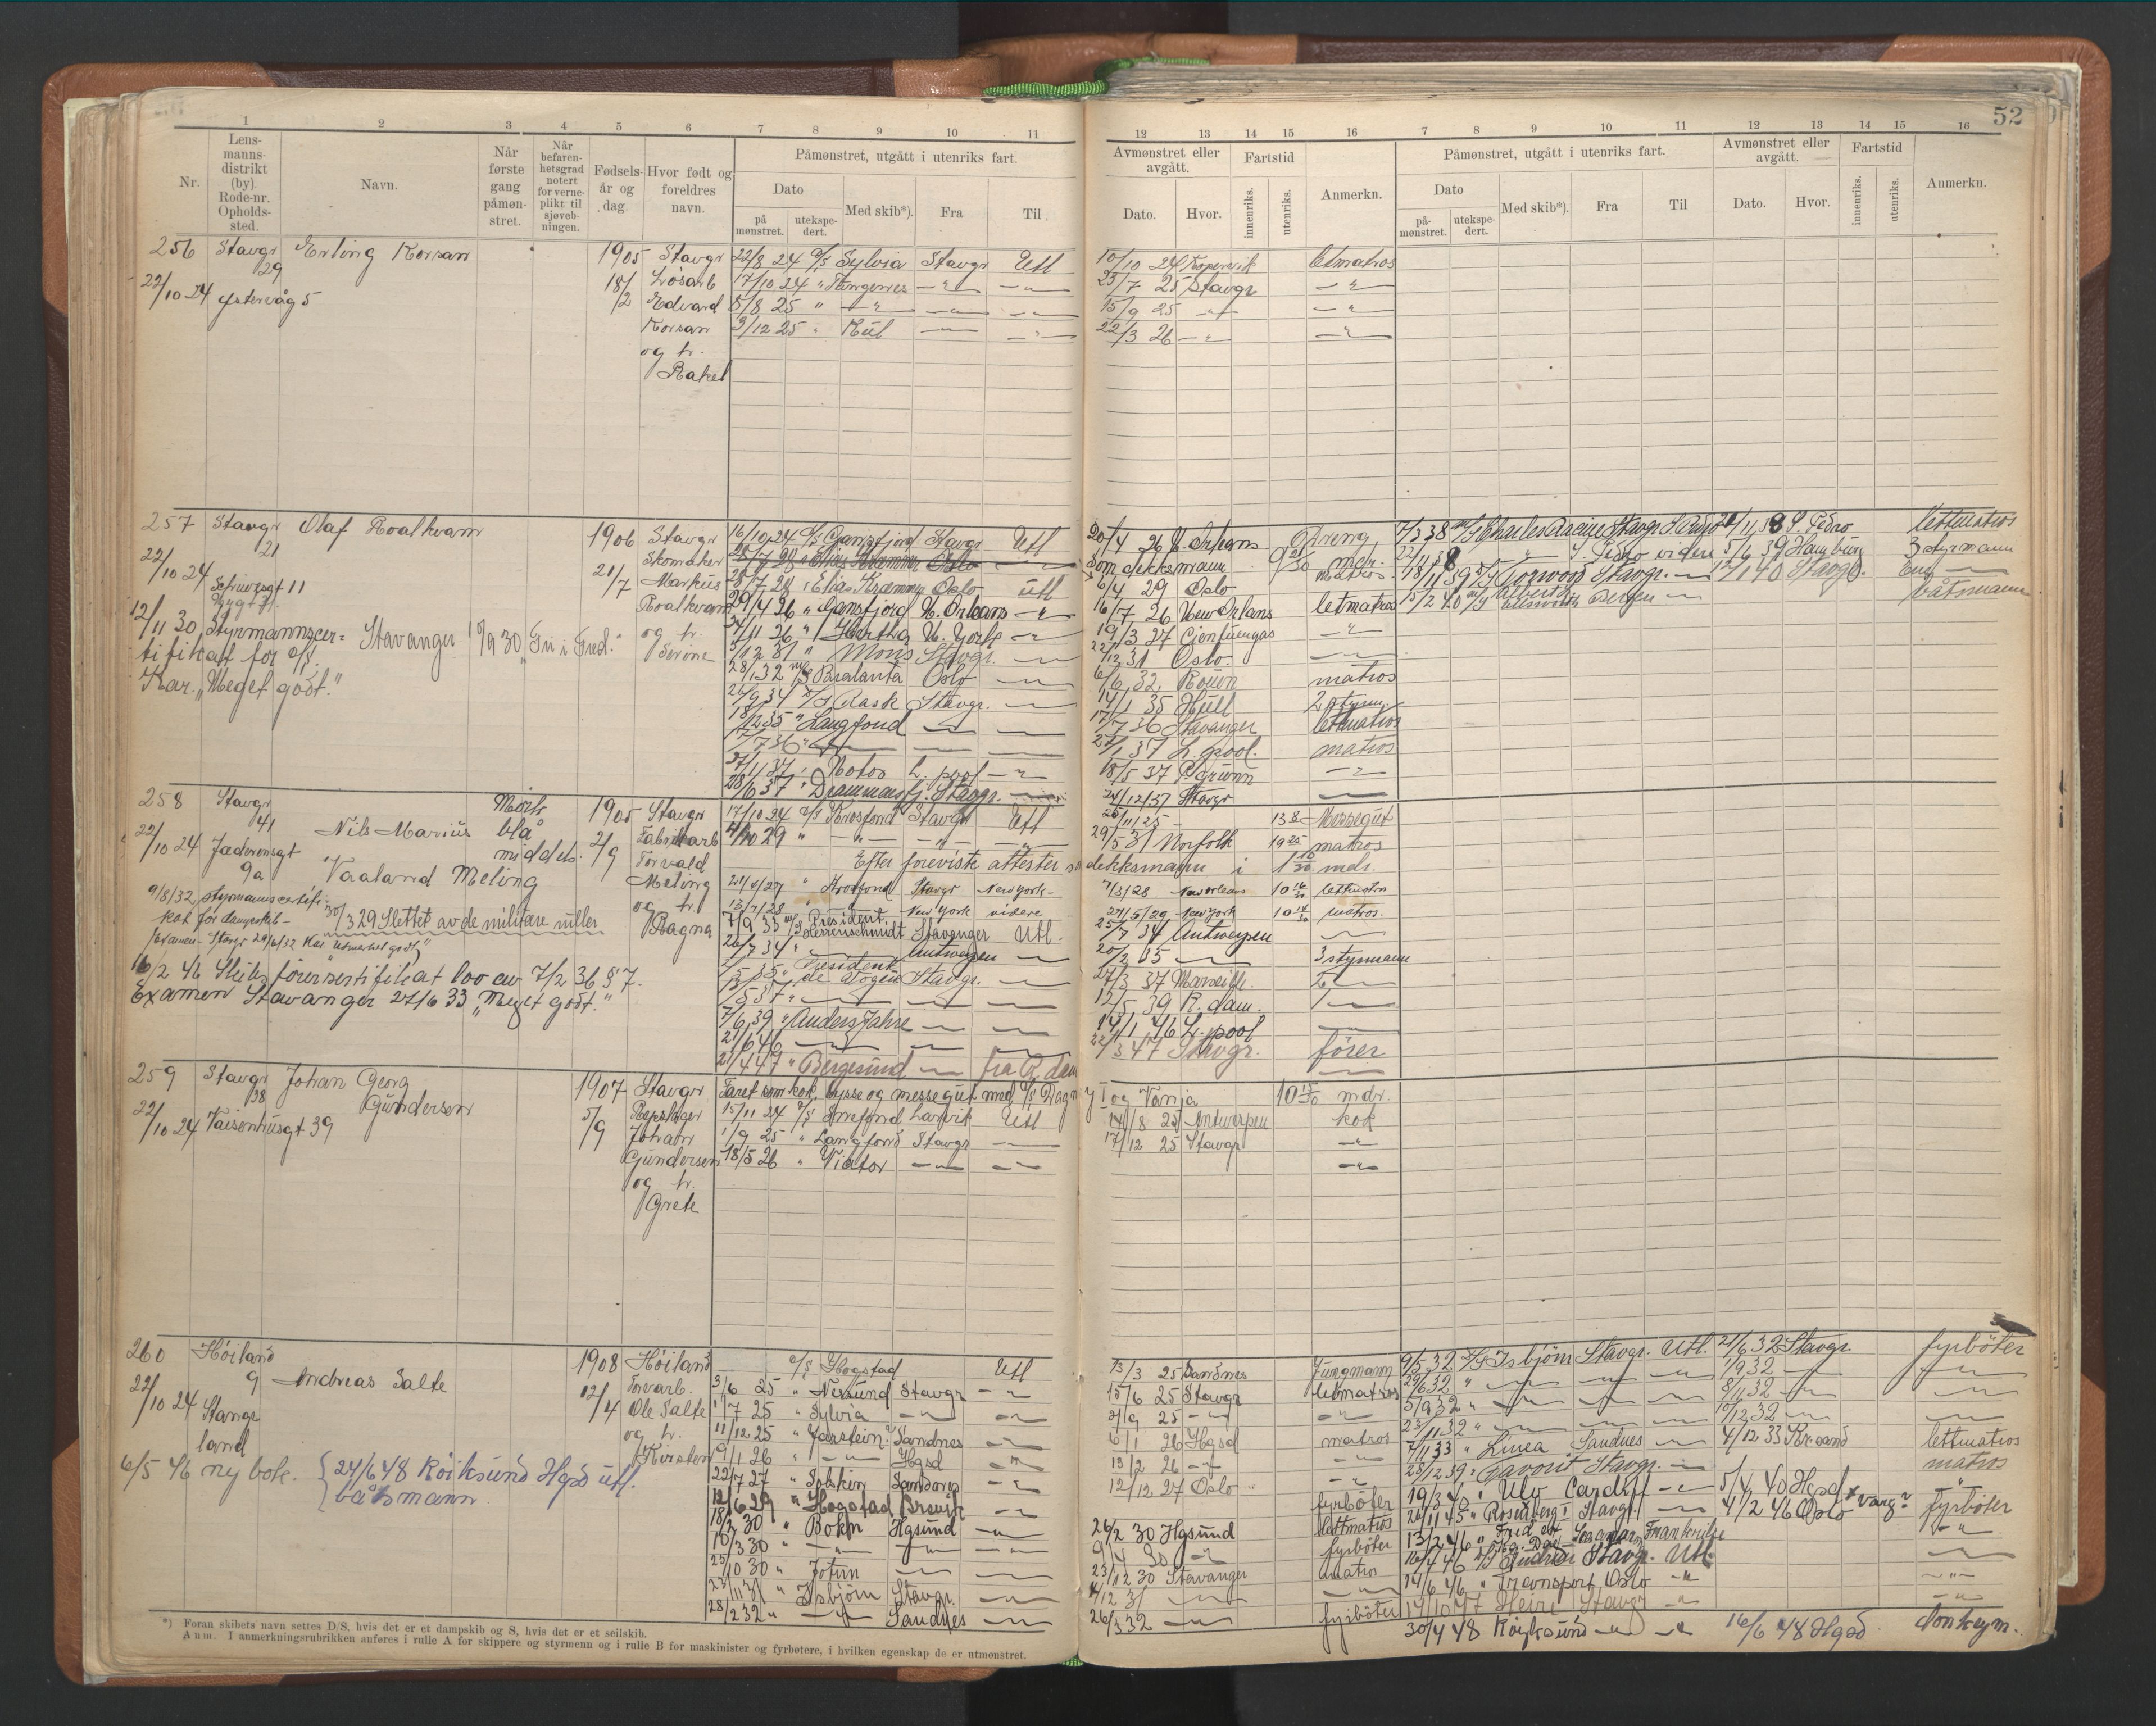 52
1 2 3 4 5 6 7 8 9 10 11
Nr.
Lens-
manns-
distrikt
(by).
Rode-nr.
Opholds-
sted.
Navn.
Når
første
gang
påmøn-
stret.
Når
befaren-
hetsgrad
notert
for verne-
plikt til
sjøveb-
ningen.
Fødsels-
år og
dag
Hvor født og
foreldres
navn.
Påmønstret, utgått i utenriks fart.
Dato
på
mønstret.
utekspe-
dert.
Med skib*).
Fra
Til
12 13 14 15 16 7 8 9 10 11 12 13 14 15 16
Avmønstret eller
avgått.
Dato.
Hvor.
Fartstid
innenriks.
utenriks.
Anmerkn.
Påmønstret, utgått i utenriks fart.
Dato
på-
mønstret.
utekspe-
dert.
Med skib*).
Fra
Til
Avmønstret eller
avgått.
Dato.
Hvor.
Fartstid
innenriks.
utenriks.
Anmerkn.
256 Stavgr Erling Korsan 1905 Stavgr 22/8 24 D/S Sylvia Stavgr Utl
29
22/10 24 Ystervåg 5
18/2 Løsarb 17/10 24 " Tungenes
Edvard 5/8 25 "
Korsan 3/12 25 " Kul
og h.
Rakel
10/10 24 Kopervik letmatros
23/7 25 Stavgr
15/9 25
22/3 26
257 Stavgr Olaf Roalkvam 1906 Stavgr 16/10 24 D/S Gansfjord Stavgr Utl
21
22/10 24
21/7 Skomaker
Markus 28/7 28 " Elias Kræmmer Oslo utl
Roalkvam 29/4 26 " Gansfjord N. Orleans
og h. 24/11 26 " Hertha N. York
Serine 3/12 31 " Mons Stavgr.
12/11 30 Styrmannscer-
tifikat for D/S. Stavanger 10/9 30 "Fri i Fred."
Kar. "Meget godt."
28/1 32 M/S Bralanta Oslo
26/9 34 D/S Rask Stavgr.
18/12 35 " Langfond
17/7 36 "
27/1 37 " Notos L. pool
28/6 37 " Drammensfj. Stavgr.
20/4 26 N. Orleans Dreng
Som dekksmann 9 21/30 mdr.
6/4 29 Oslo Matros
16/7 26 New Orleans letmatros
19/3 27 Cienfuengas
22/12 31 Oslo.
6/6 32 Rouen matros
14/1 35 Hull 2 styrm.
17/7 36 Stavanger lettmatros
27/1 37 L. pool. matros
18/5 37 P. grunn
24/12/37 Stavgr
7/3 38 M/S Charles Racine Stavgr. S. Pedro 21/11 38 S. Pedro lettmatros
22/11 38 S. Pedro videre 5/6 39 Hamburg 3 styrmann
18/11 39 D/S Norwood Stavgr. 12/1 40 Stavgr. Ene
15/2 40 M/S Alberta Ellsworth Bergen båtsmann
258 Stavgr Mørk 1905 Stavgr 17/10 24 D/S Krosfond Stavgr Utl
41 Nils Marius blå Fabrikarb 4/10 29 "
22/10 24 Jæderensgt middels. 2/9 Torvald Efter foreviste attester som dekksmann i 1 10/30 mdr.
9a Vaaland Meling Meling 21/4/27 " Krosfond Stavgr New York
9/8/32 styrmannscertifi-
kat for dampskib 30/3 29 Slettet av de militære ruller og h. 13/7/28 " New York videre
Examen Stavgr 29/6/32 Kar "utmerket godt" Ragna 7/9 33 M/S President Herrenschmidt Stavanger Utl.
16/2 46 Skibsførersertifikat lov av 7/2 36 § 7.
Examen Stavanger 27/6 33 "Meget godt."
26/7 34 " Antwerpen
2/5 35 " President de Vogue Stavgr.
13/5 37 "
7/6 39 " Anders Jahre
21/6 46
21/4 47 " Bergesund fra R. dam
25/11/25 13 8 Messegut
29/5 31 Norfolk 19 25 matros
7/3/28 New orleans 10 14/30 lettmatros
24/5/29 New York 10 14/30 matros.
25/7 34 Antwerpen
20/2 35 3 styrmann
27/3 37 Marseille. 2
12/5 39 R. dam. 1
14/1 46 L. pool
22/3 47 Stavgr. fører
259 Stavgr Johan Georg 1907 Stavgr Faret som kok, bysse og messegut med D/S Dagny I og Vanja 10 15/30 mdr.
38 Gundersen
22/10 24 Vaisenhusgt 39 5/9 Repslager 15/11 24 D/S Snefond Larvik Utl 14/8 25 Antwerpen kok
Johan 1/9 25 " Langfond Stavgr 17/12 25 Stavgr
Gundersen 18/5 26 " Viator
og h.
Grete
260 Høiland Andreas Salte 1908 Høiland D/S Hogstad Utl
9
22/10 24 Stange
land
12/4 Torvarb. 3/6 25 " Nessund Stavgr
Ole Salte 1/7 25 " Sylvia
og h. 11/12 25 " Jarstein Sandnes
Kirsten 9/1 26 " Hgsd
6/5 46 ny bok. 24/6 48 Røiksund Hgsd utl.
båtsmann
22/7 27 " Solskin Sandnes
12/6 29 " Hogstad Brevik
18/2 30 " Bokn Hgsund
10/3 30 "
25/10 30 " Jotun
23/11 31 " Isbjørn Stavgr.
28/2 32 " Sandnes
13/3 25 Sandnes Jungmann
15/6 25 Stavgr letmatros
2/9 25
6/1 26 Hgsd matros
13/2 26
12/12 27 Oslo
fyrbøter
26/2 30 Hgsund lettmatros
9/4 30 fyrbøter
23/12 30 Stavanger matros
4/12 31
26/3 32 fyrbøter
9/5 32 D/S Isbjørn Stavgr. Utl. 21/6 32 Stavgr. fyrbøter
29/6 32 " 1/9 32
5/9 32 " 8/11 32
23/11 32 " 10/12 32
7/11 33 " Linea Sandnes 4/12 33 Kr.sand lettmatros
28/12 39 " Favorit Stavgr. matros
19/3 40 " Ulv Cardiff 5/4 40 Hgsd
26/11 45 " Rosenberg I Stavgr. 4/2 46 Oslo * Varg? fyrbøter
13/2 46 " Frankrike
16/4 46 D/S Gudrun Stavgr. Utl
14/6 46 " Transport Oslo
14/10 47 " Heire Stavgr
30/4 48 Røiksund 16/6 48 Hgsd Donkeym.
*) Foran skibets navn settes D/S, hvis det er et dampskib og S, hvis det er et seilskib.
Anm. I anmerkningsrubrikken anføres i rulle A for skippere og styrmenn og i rulle B for maskinister og fyrbøtere, i hvilken egenskap de er utmønstret.